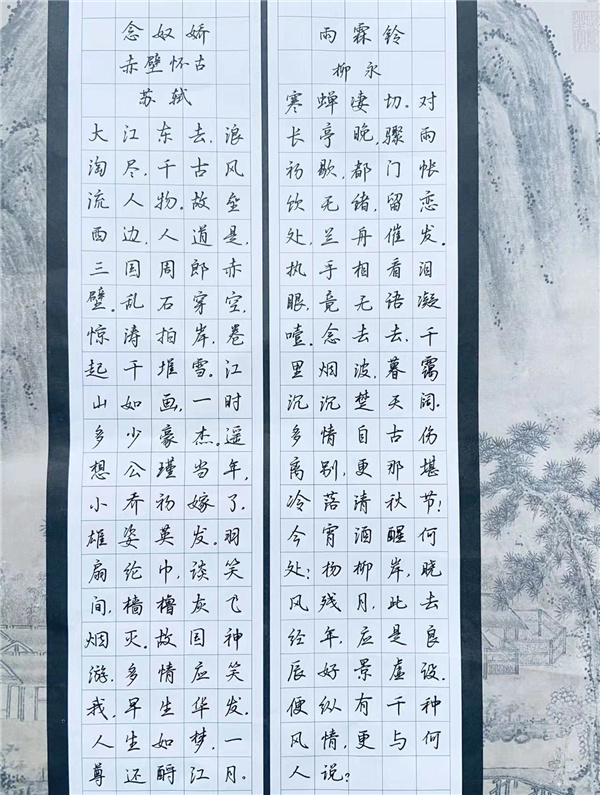 念奴娇
赤壁怀古
苏轼
大江东去,浪
淘尽,千古风
流人物。故垒
西边,人道是,
三国周郎赤
壁。乱石穿空,
惊涛拍岸,卷
起千堆雪。江
山如画,一时
多少豪杰。遥
想公瑾当年,
小乔初嫁了。
雄姿英发。羽
扇纶巾,谈笑
间,樯橹灰飞
烟灭。故国神
游。多情应笑
我,早生华发。
人生如梦,一
尊还酹江月。
雨霖铃
柳永
寒蝉凄切。对
长亭晚,骤雨
初歇,都门帐
饮无绪,留恋
处,兰舟催发。
执手相看泪
眼,竟无语凝
噎。念去去,千
里烟波,暮霭
沉沉楚天阔。
多情自古伤
离别,更那堪
冷落清秋节!
今宵酒醒何
处?杨柳岸,晓
风残月,此去
经年,应是良
辰好景虚设。
便纵有千种
风情,更与何
人说?